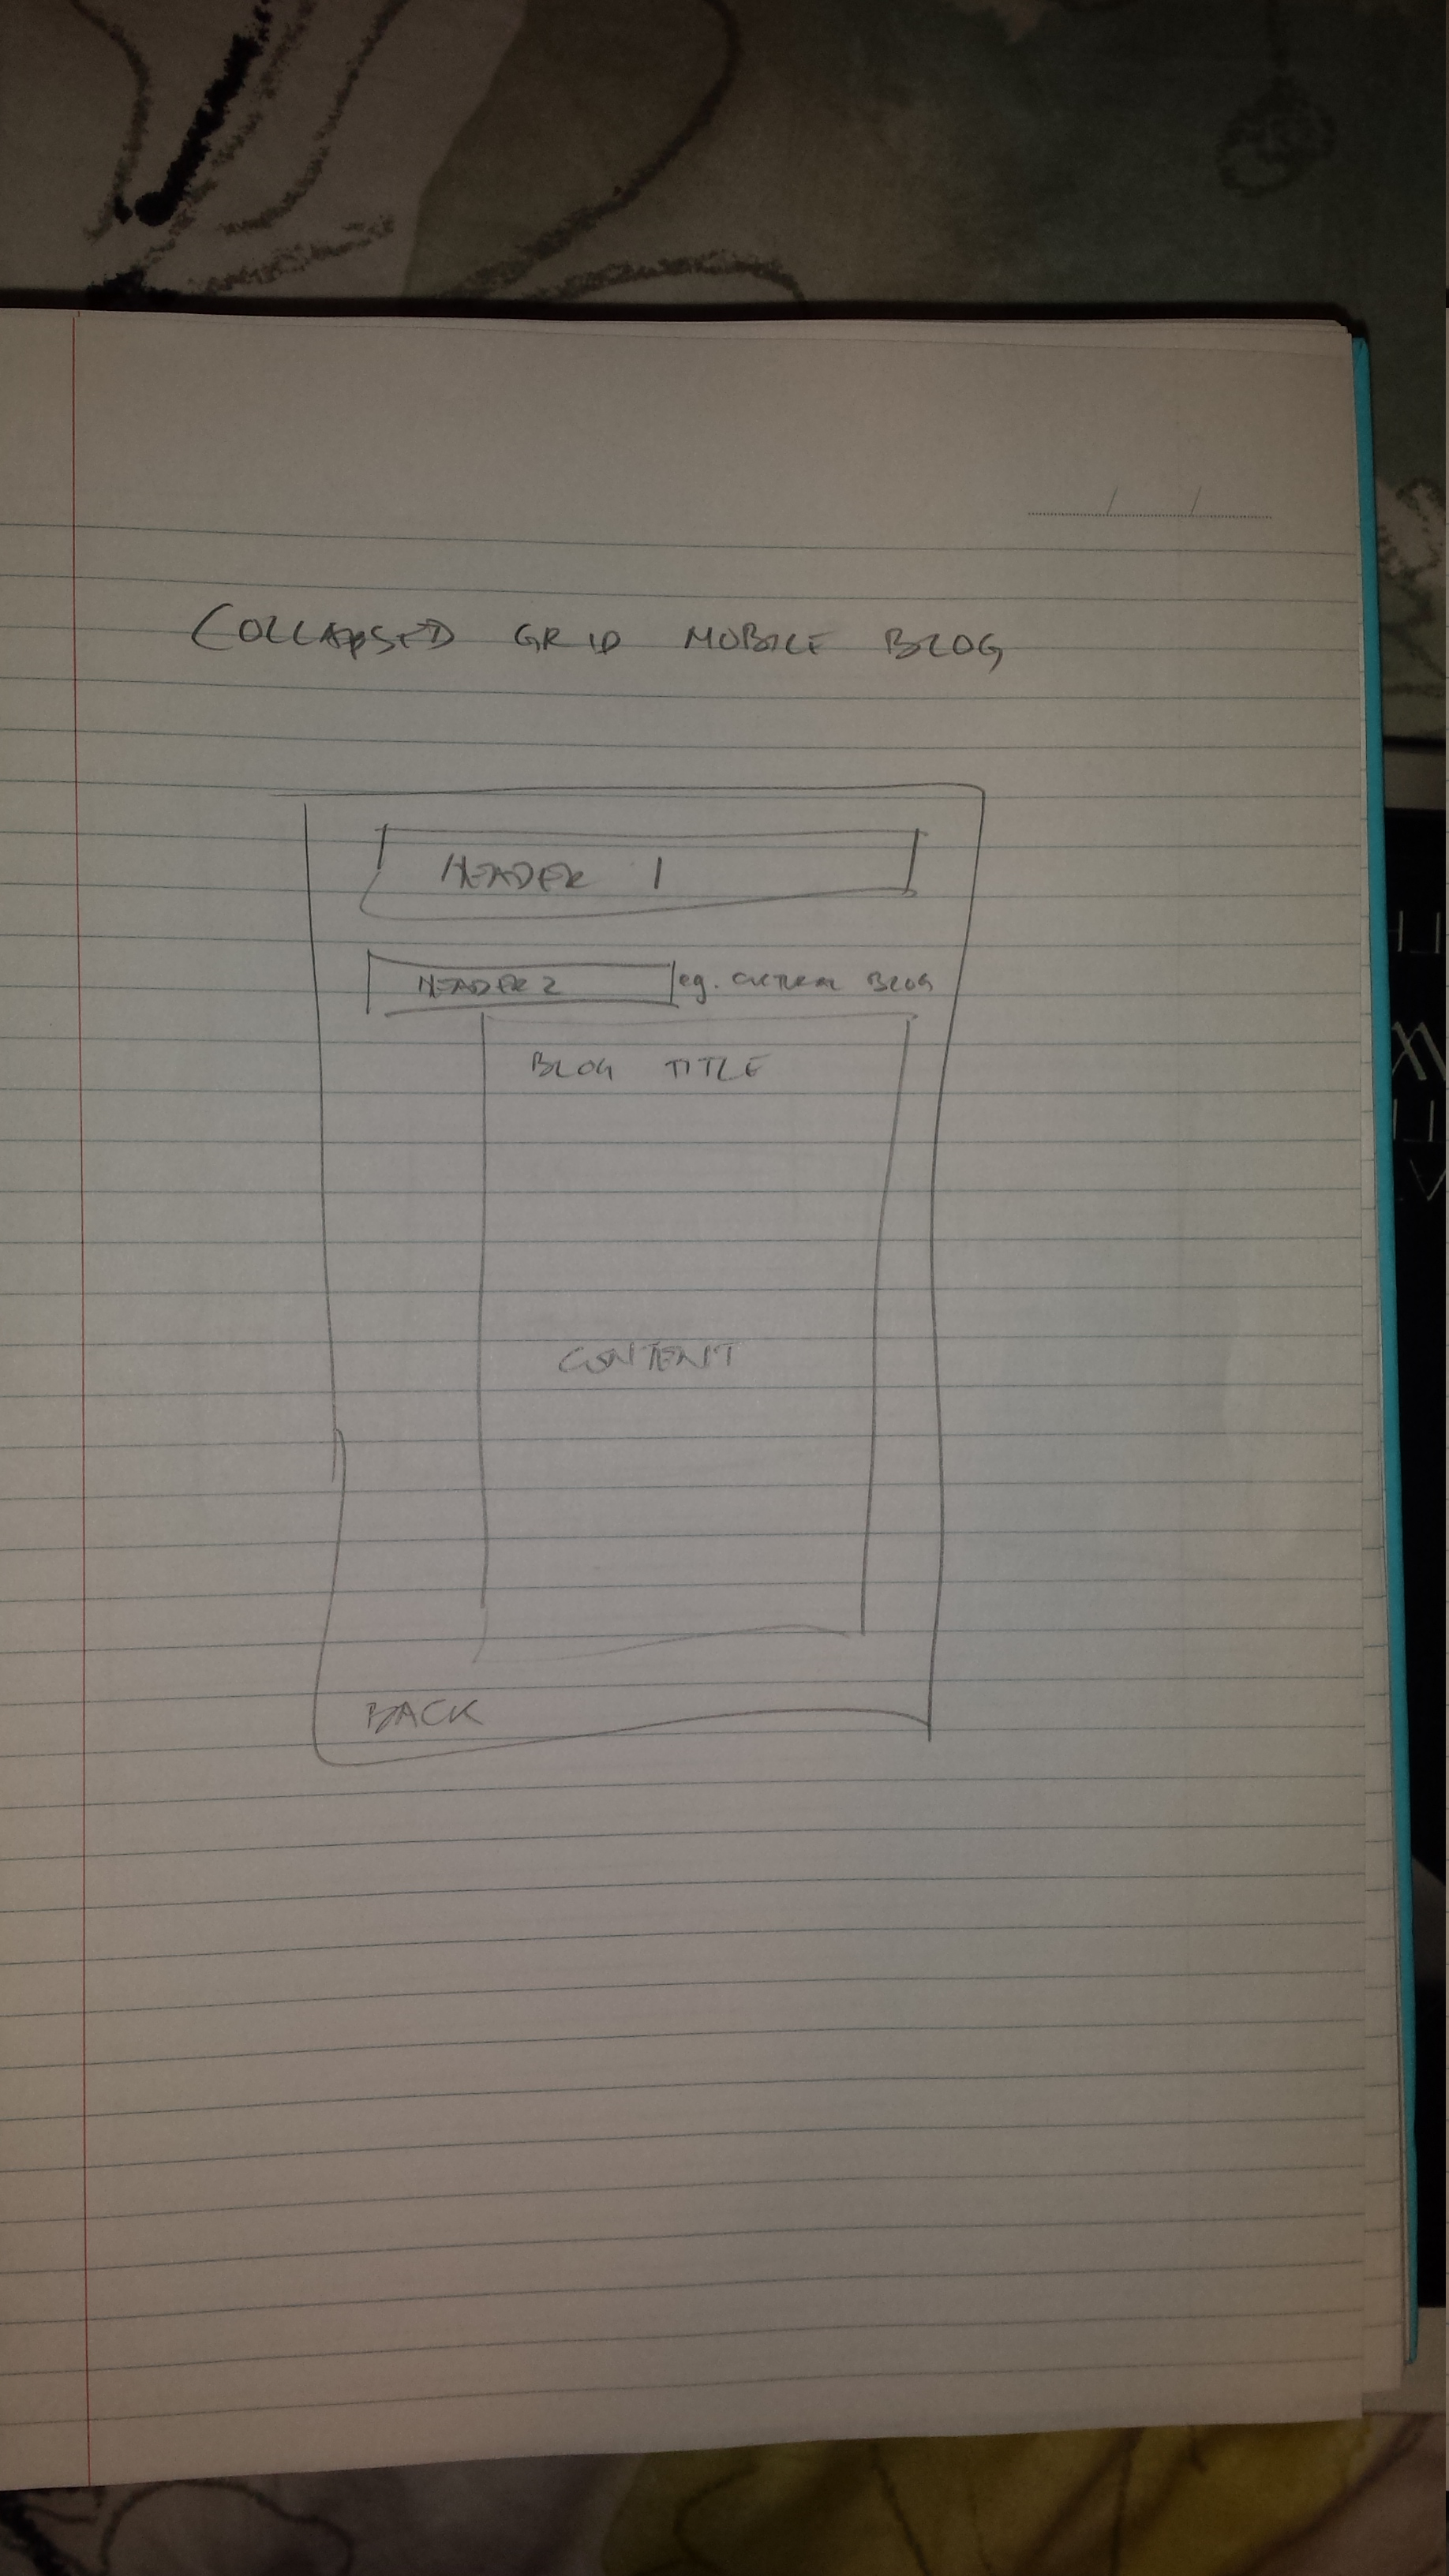 COLLAPSED GRID MOBILE BLOG
HEADER 1
HEADER 2 eg. CULTURAL BLOG
BLOG TITLE
CONTENT
BACK